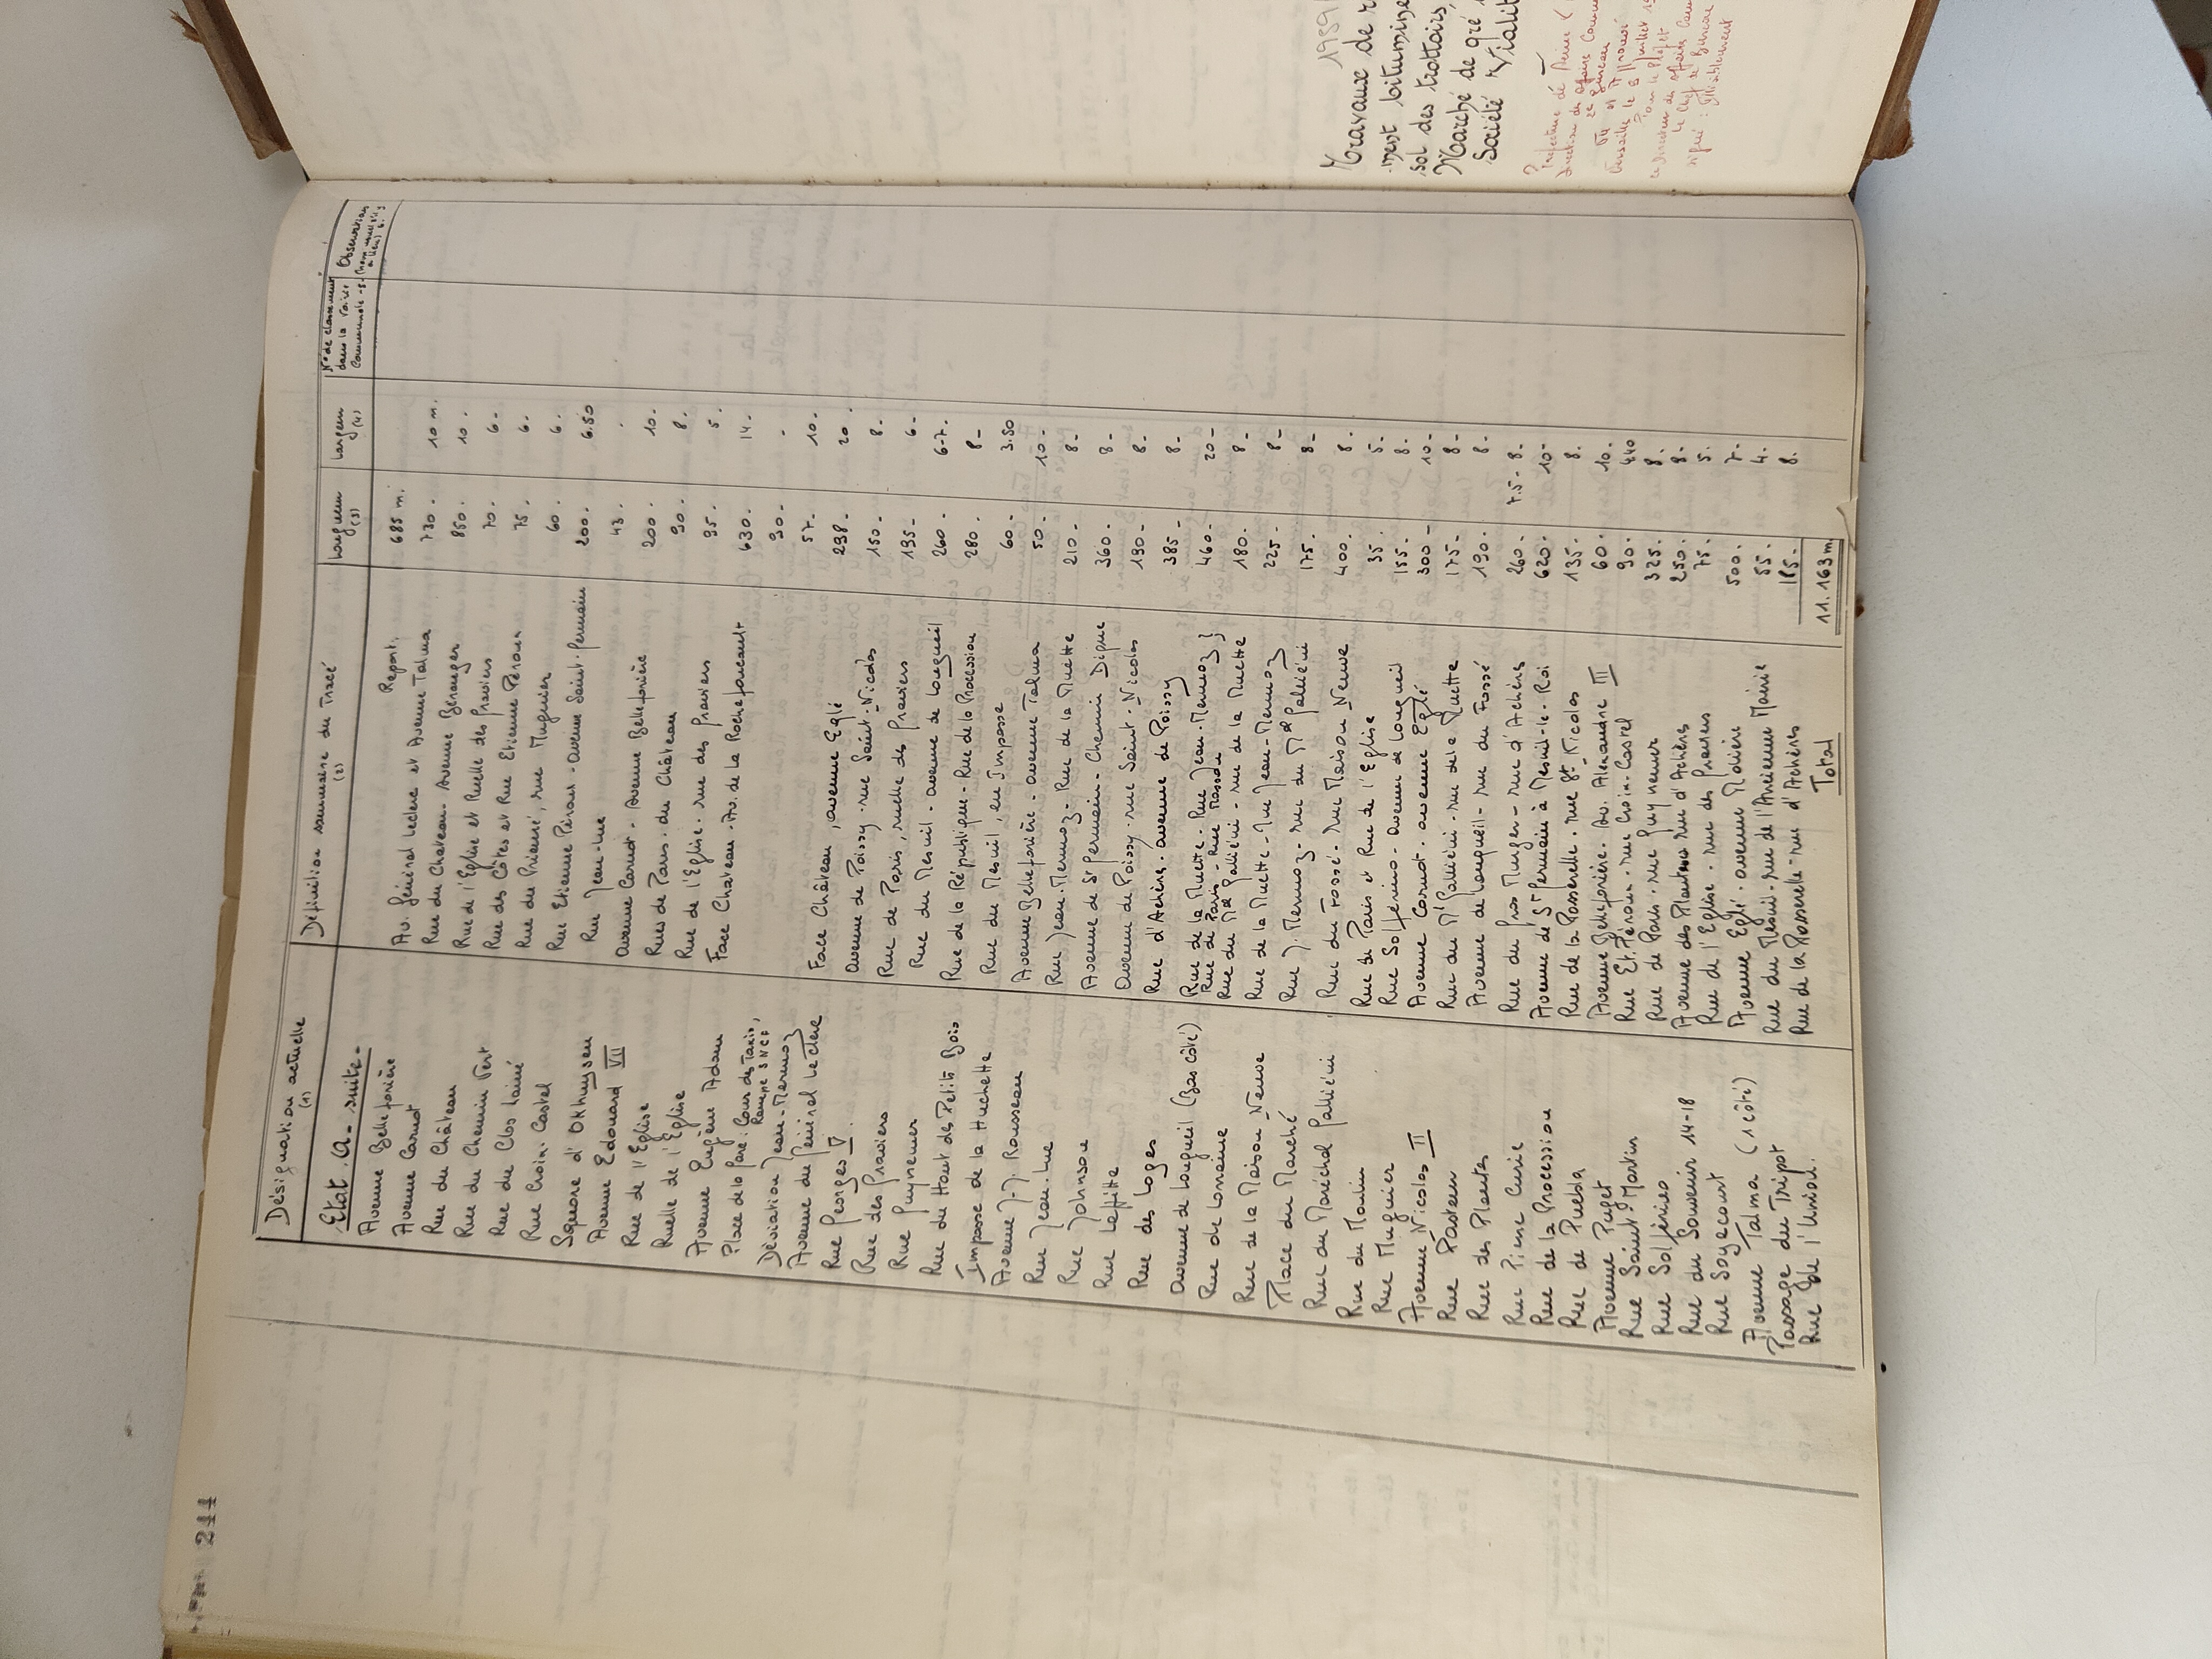 244
Désignation actuelle (1) Définition sommaire du Tracé (2) Longueur (3) Largeur (4) N° de classement dans la voirie communale -5- Observations
Etat. A - suite - Report. 685 m.
Avenue Belleforière Av. Général Leclerc et Avenue Talma 730. 10 m.
Avenue Carnot Rue du Chateau - Avenue Béranger 850. 10.
Rue du Château Rue de l'Eglise et Ruelle des Graviers 70. 6-
Rue du Chemin Vert Rue des Côtes et Rue Etienne Péroux 75. 6.
Rue du Clos Lainé Rue du Prieuré, rue Muguier 60. 6.
Rue Croix-Castel Rue Etienne Péroux - avenue Saint-Germain 200. 6.50
Square d'Okhuysen Rue Jean-Luc 43.
Avenue Edouard VII Avenue Carnot - Avenue Belleforière 200. 10.
Rue de l'Eglise Rues de Paris - du Château 90. 8.
Ruelle de l'Eglise Rue de l'Eglise - rue des Graviers 95. 5.
Avenue Eugène Adam Face Chateau - Av. de La Rochefoucault 630. 14.
Place de la Gare : Cour des Taxis, Rampe SNCF 90- -
Déviation Jean-Mermoz 57- 10.
Avenue du Général Leclerc Face Château, avenue Eglé 298. 20.
Rue Georges V. avenue de Poissy - rue Saint-Nicolas 150- 8.
Rue des Graviers Rue de Paris, ruelle des Graviers 195- 6-
Rue Guynemer Rue du Mesnil - avenue de Longueil 260- 6-7.
Rue du Haut des Petits Bois Rue de la République - Rue de la Procession 280. 8-
Impasse de la Huchette Rue du Mesnil, en Impasse 60- 3.50
Avenue J-J. Rousseau Avenue Belleforière - avenue Talma 50- 10-
Rue Jean-Luc Rue Jean-Mermoz - Rue de la Muette 210- 8-
Rue Johnson Avenue de St Germain - Chemin 360- 8-
Rue Laffitte Avenue de Poissy - rue Saint-Nicolas 190- 8-
Rue des Loges Rue d'Achères - avenue de Poissy 385- 8-
Avenue de Longueil (Bas côté) Rue de la Muette - Rue Jean-Mermoz } Rue de Paris - Rue Masson 460- 20-
Rue de Lorraine Rue du Mal Galliéni - rue de la Muette 180. 8-
Rue de la Maison Neuve Rue de la Muette - rue Jean-Mermoz 225- 8-
Place du Marché Rue J. Mermoz - rue du Mal Galliéni 175- 8-
Rue du Maréchal Galliéni Rue du Fossé - rue Maison Neuve 400. 8.
Rue du Moulin Rue de Paris et Rue de l'Eglise 35. 5-
Rue Muguier Rue Solférino - avenue de Longueil 155- 8.
Avenue Nicolas II Avenue Carnot - avenue Eglé 300- 10-
Rue Pasteur Rue du Mal Galliéni - rue de la Muette 175- 8-
Rue des Plantes Avenue de Longueil - rue du Fossé 190. 8-
Rue Pierre Curie Rue du Gros Murger - rue d'Achères 260- 7.5-8.
Rue de la Procession Avenue de St Germain à Mesnil-le-Roi 620- 10-
Rue de Puebla Rue de la Passerelle - rue St Nicolas 135- 8.
Avenue Puget Avenue Belleforière - Av. Alexandre III 60- 10.
Rue Saint-Martin Rue Et. Péroux - rue Croix-Castel 90-
Rue Solférino Rue de Paris - rue Guynemer 325. 8.
Rue du Souvenir 14-18 Avenue des Plantes rue d'Achères 250. 8.
Rue Soyecourt Rue de l'Eglise - rue des Graviers 75. 5.
Avenue Talma (1 côté) Avenue Eglé - avenue Molière 500. 7-
Passage du Tripot Rue du Mesnil - rue de l'Ancienne Mairie 55. 4.
Rue de l'Union. Rue de la Passerelle - rue d'Achères 185- 8.
Total 11.163 m
1959
Travaux de r
-ment bitumine
sol des trottoirs,
Marché de gré
Société Vialit
Préfecture de
Direction des Affaires Commu
2e Bureau
Versailles le 8 juillet 19
Pour le Préfet
Le Directeur des Affaires Com
Le Chef de Bureau
signé : Illisiblement